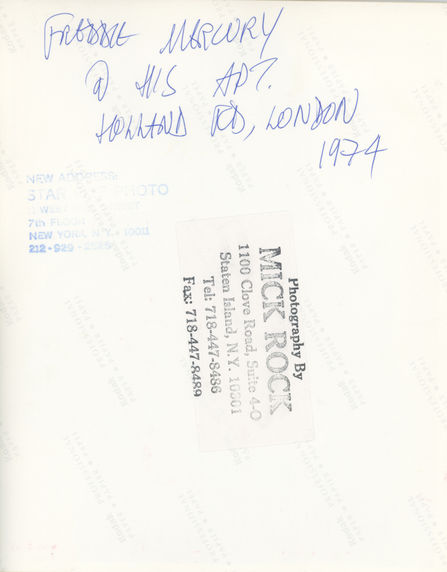 FREDDIE MERCURY
@ HIS APT.
HOLLAND RD, LONDON
1974
NEW ADDRESS:
STAR PHOTO
WEST
7th FLOOR
NEW YORK, N.Y. 10011
212-929-
Photography By
MICK ROCK
1100 Clove Road, Suite 4-O
Staten Island, N.Y. 10301
Tel: 718-447-8486
Fax: 718-447-8489